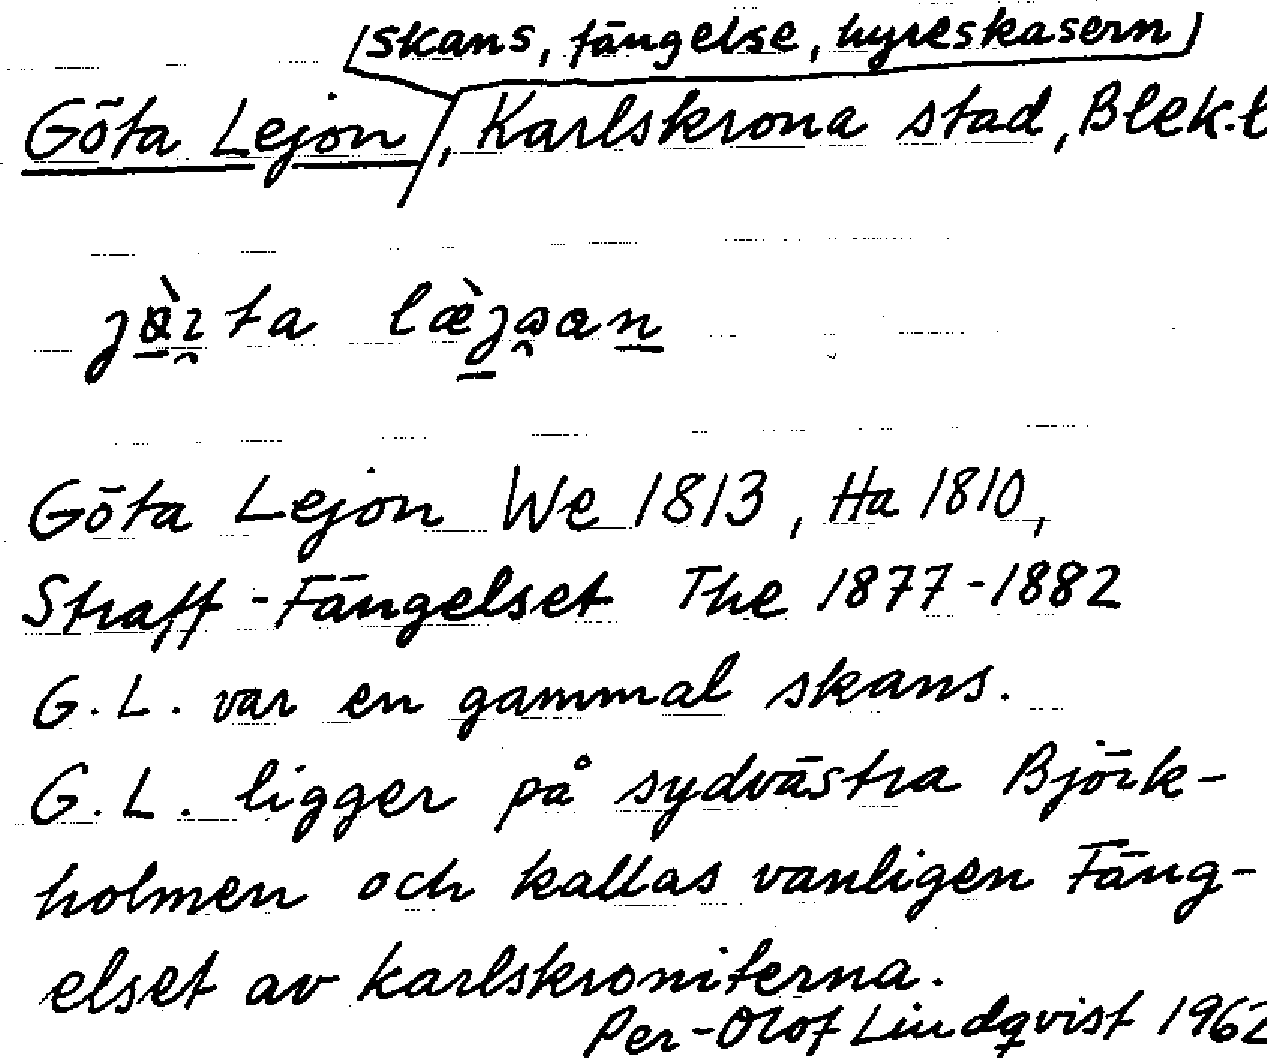 skans, fängelse, hyreskasern
Göta Lejon, Karlskrona stad, Blek.
Göta Lejon We 1813, Ha 1810,
Straff-Fängelset The 1877-1882
G.L. var en gammal skans.
G.L. ligger på sydvästra Björk-
holmen och kallas vanligen Fäng-
elset av karlskroniterna.
Per-Olof Lindqvist 1962